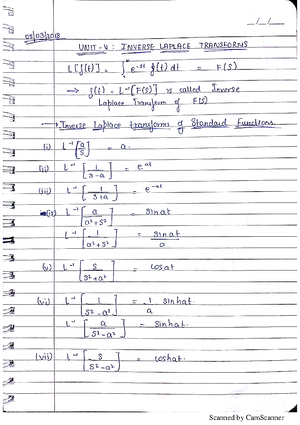 07/03/2018
UNIT-4: INVERSE LAPLACE TRANSFORMS
L[f(t)] = ∫₀^∞ e^-st f(t) dt = F(S)
→ f(t) = L⁻¹[F(S)] is called Inverse
Laplace Transform of F(S)
→ Inverse Laplace transforms of Standard Functions.
(i) L⁻¹[a/S] = a.
(ii) L⁻¹[1/(S-a)] = e^at
(iii) L⁻¹[1/(S+a)] = e^-at
(iv) L⁻¹[a/(a²+S²)] = sinat
L⁻¹[1/(a²+S²)] = sinat/a
(v) L⁻¹[S/(S²+a²)] = cosat
(vi) L⁻¹[1/(S²-a²)] = 1/a sinhat.
L⁻¹[a/(S²-a²)] = sinhat.
(vii) L⁻¹[S/(S²-a²)] = coshat.
Scanned by CamScanner